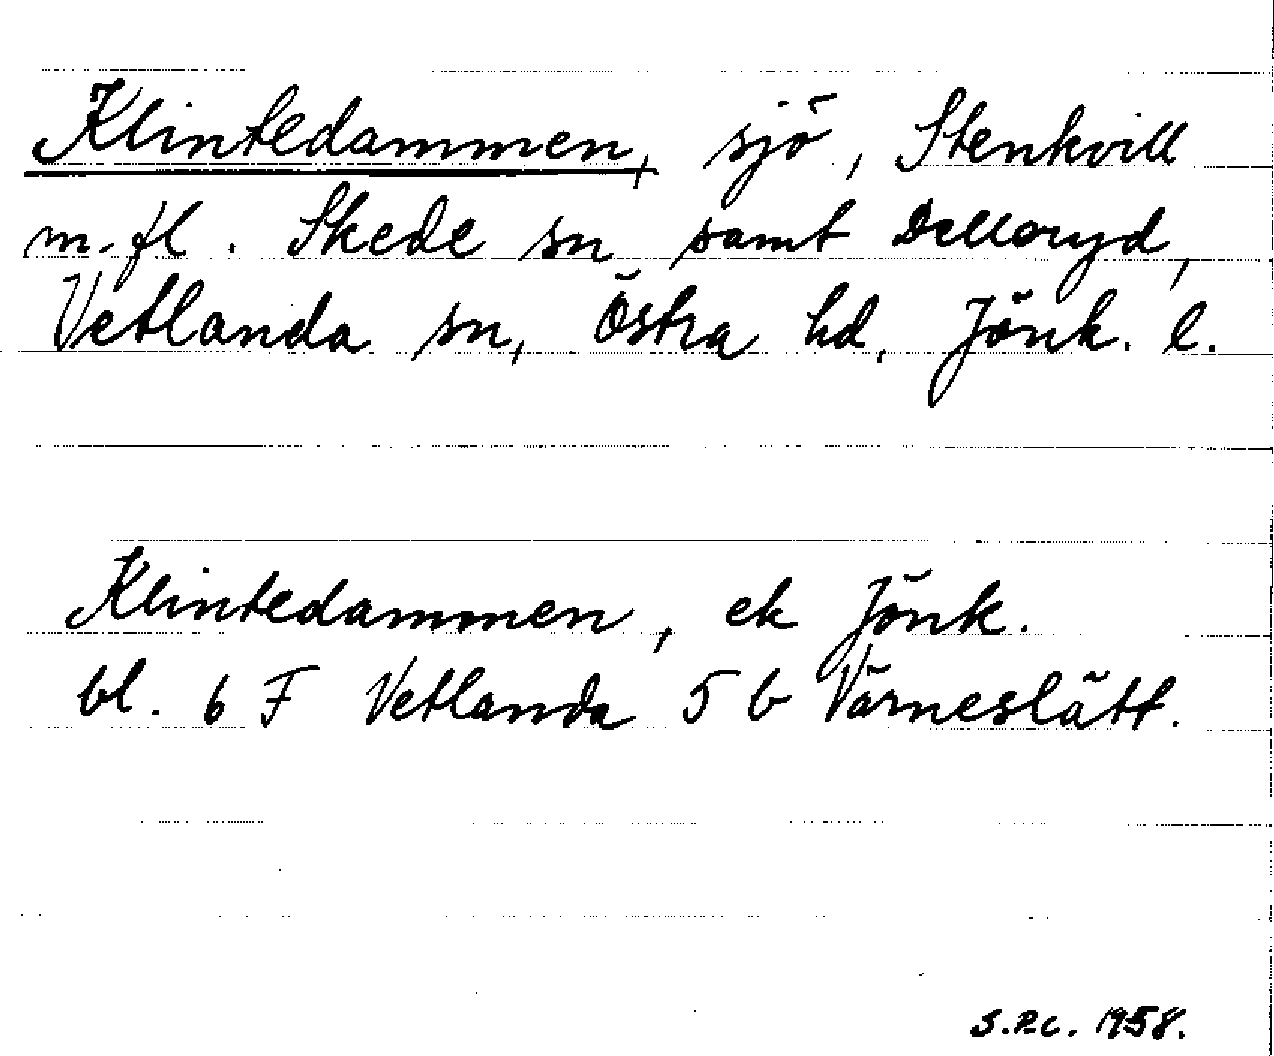 Klintedammen, sjö, Stenkvill
m.fl. Skede sn samt Delloryd,
Vetlanda sn, Östra hd, Jönk. l.
Klintedammen, ek Jönk.
bl. 6 F Vetlanda 5 b Värneslätt.
S.R.C. 1958.